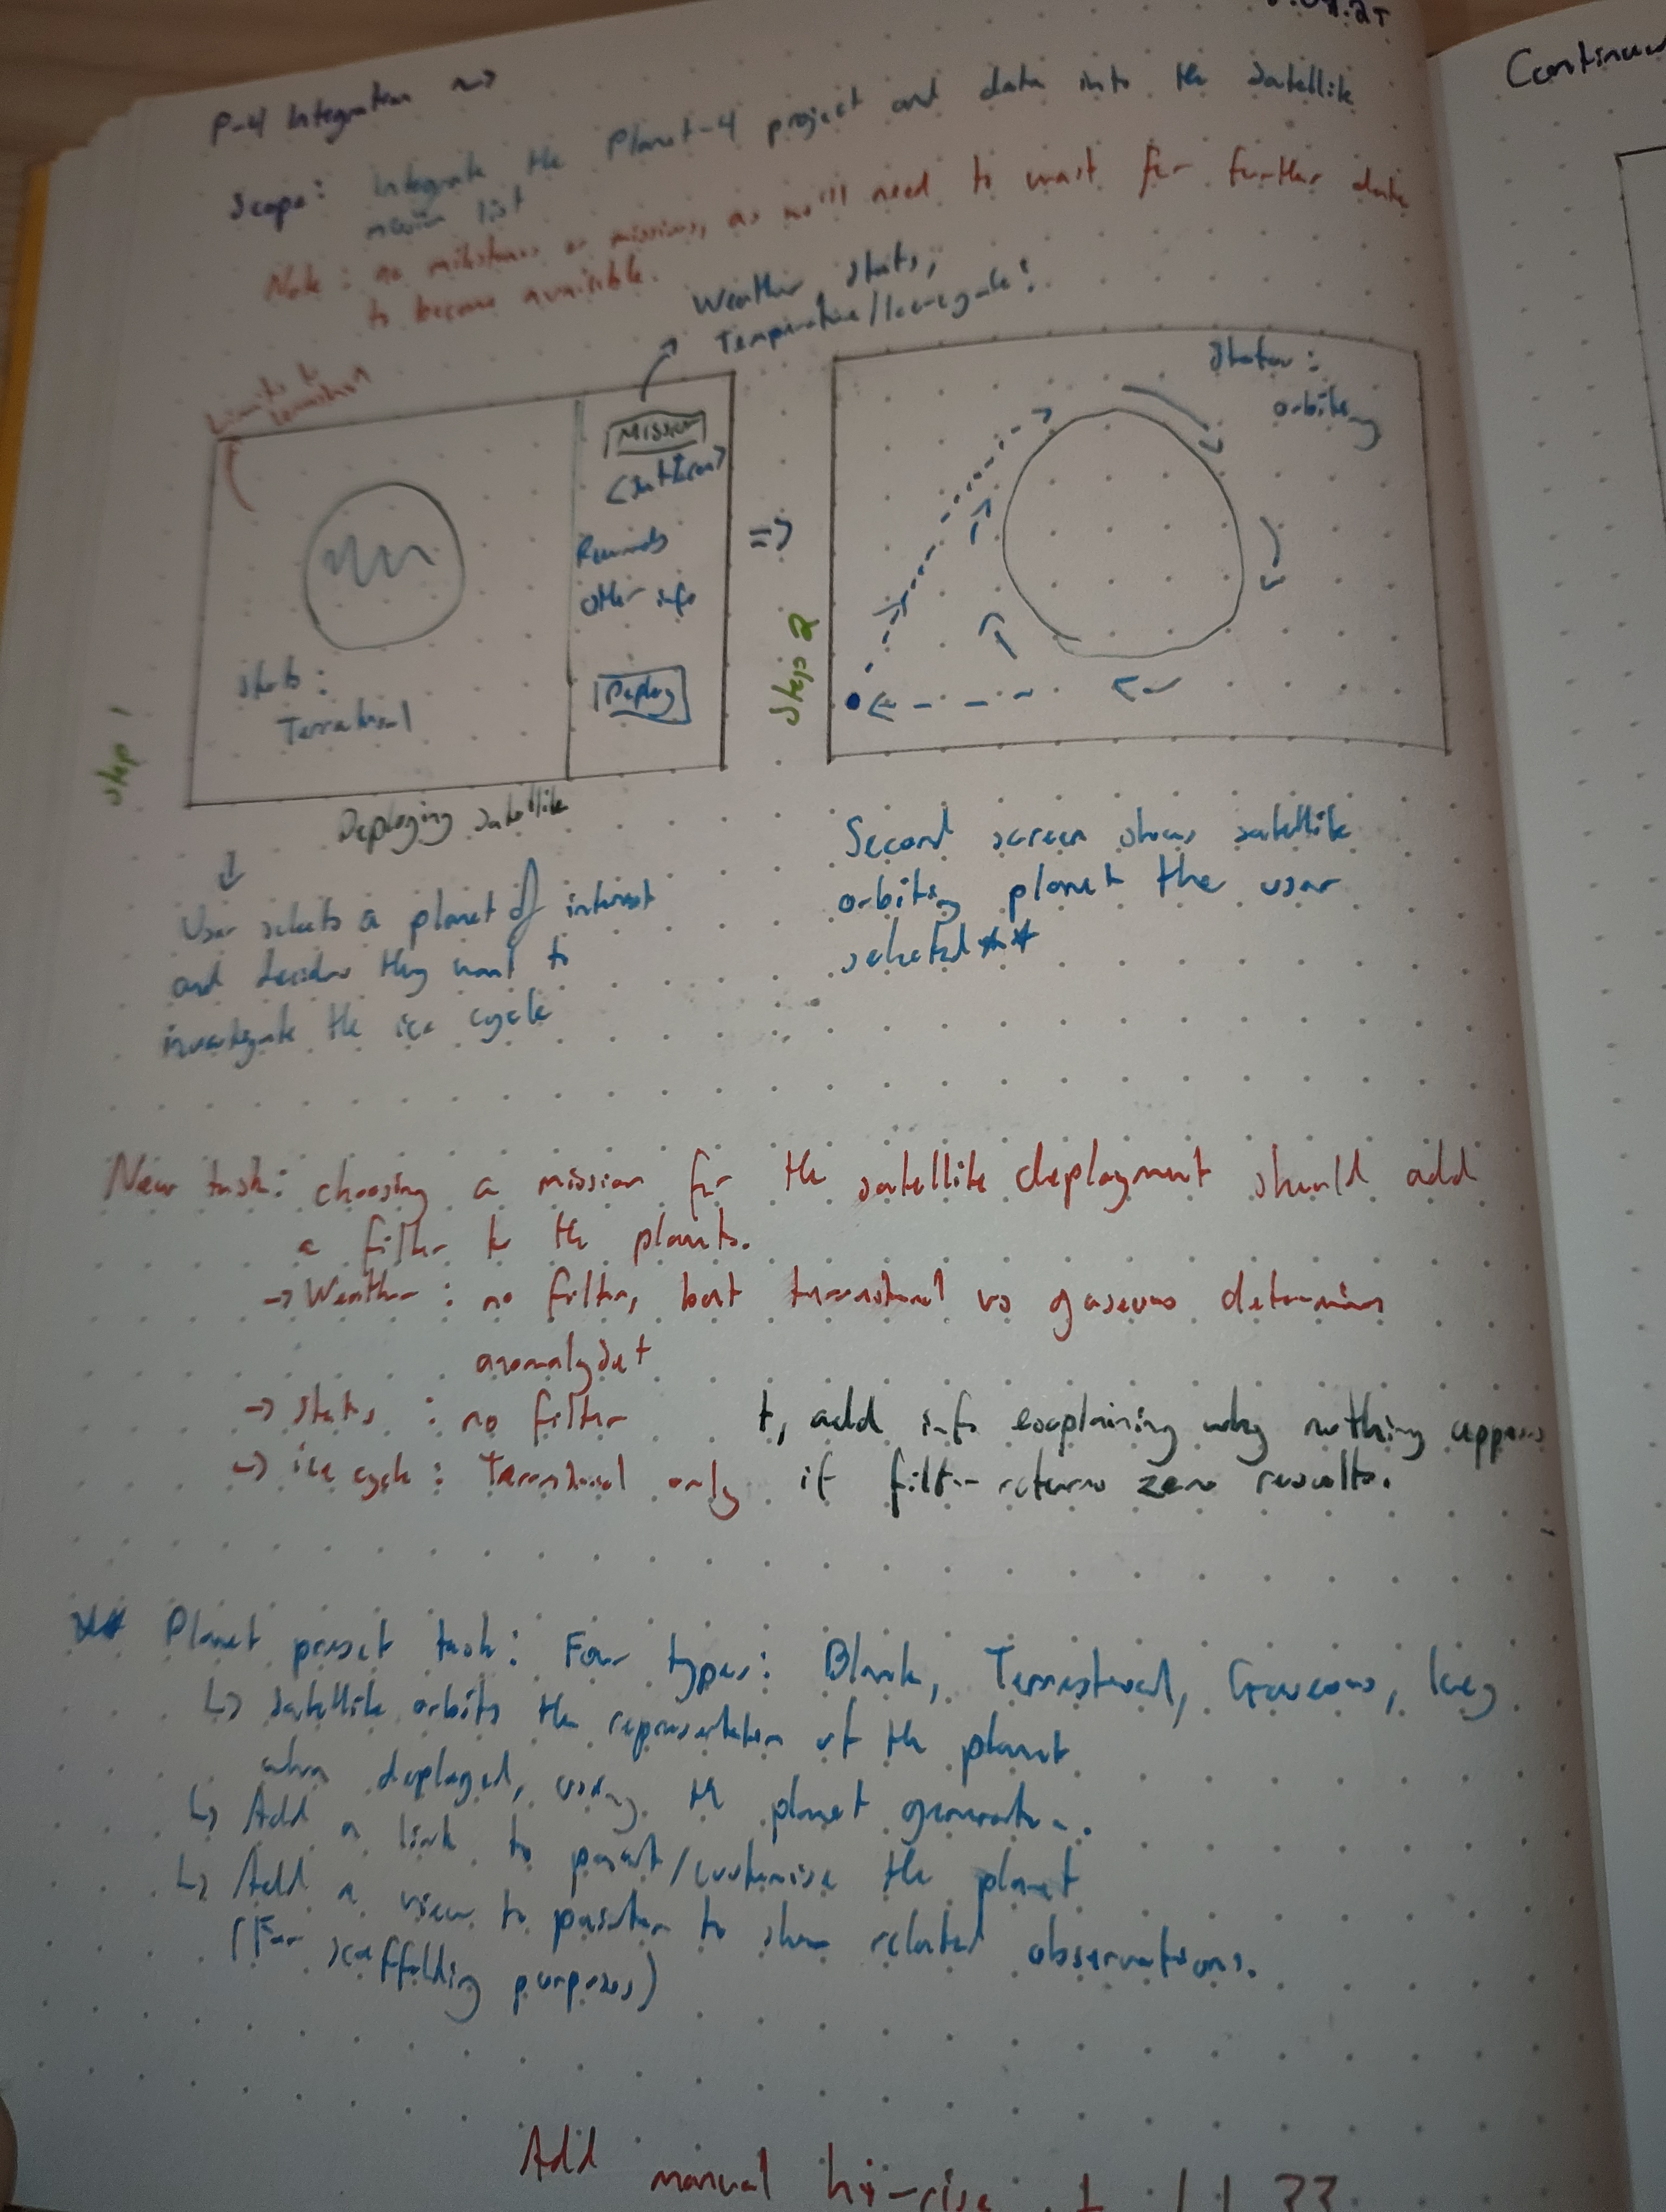 P-4 Integration ~>
Scope: Integrate the Planet-4 project and data into the satellite
mission list
Note: no milestones or missions, as we'll need to wait for further data
to become available.
Weather, stats,
Temperature/Ice-cycle!
Limits to
terrestrial
Mission
<Sat Icon>
Rewards
other info
Deploy
Stats:
Terrestrial
Step 1
Deploying satellite
=>
Step 2
Status:
orbiting
User selects a planet of interest
and decides they want to
investigate the ice cycle
Second screen shows satellite
orbiting planet the user
selected**
New task: choosing a mission for the satellite deployment should add
a filter to the planets.
-> Weather: no filter, but terrestrial vs gaseous determines
anomalyset
-> Stats: no filter
-> ice cycle: Terrestrial only
↳ add info explaining why nothing appears
if filter returns zero results.
** Planet preset task: Four types: Blank, Terrestrial, Gaseous, Icey
↳ satellite orbits the representation of the planet
when deployed, using the planet generator.
↳ Add a link to /customise the planet
↳ Add a view to to show related observations.
(For scaffolding purposes)
Add manual
Continued